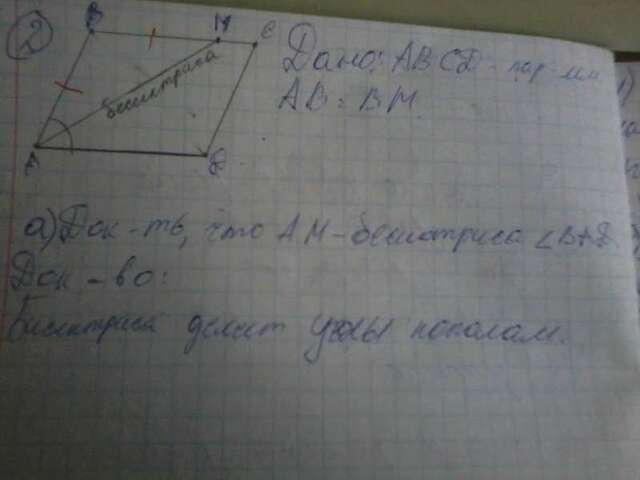 2
B M C
биссектриса
A D
Дано: ABCD - пар-мм
AB = BM
а) Док-ть, что AM - биссектриса ∠BAD
Док-во:
Биссектриса делит углы пополам.